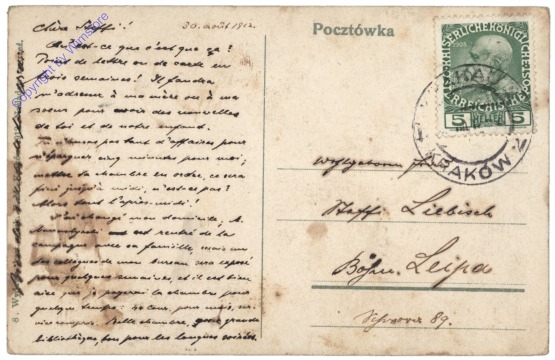 30. août 1912.
Chère Steffi!
Qu'est-ce que c'est que ça?
Point de lettre ou de carte en
trois semaines! Il faudra
m'adresser à ma mère ou à ma
soeur pour avoir des nouvelles
de toi et de notre enfant.
N'aurais pas tant d'affaires pour
n'épargner cinq minutes pour moi,
mettre ta chambre en ordre, ce sera
fini jusqu'à midi, n'est-ce pas?
Alors dont l'après-midi!
J'ai changé mon domicile, M.
est rentré de la
campagne avec sa famille, mais un
des collègues de mon bureau sera exposé
pour quelques semaines, et il est bien
aise que je pagerai la chambre pour
quelque temps: 40 Cour. pour mois,
compris. Belle chambre, grande
bibliothèque, bon pour les longues soirées.
Copyright by Warnstore
Pocztówka
KAISERLICHE KÖNIGLICHE
ÖSTERREICHISCHE POST
5 HELLER 5
KRAKAU
KRAKÓW
Wohlgeboren
Steffi Liebisch
Böhm. Leipa
89.